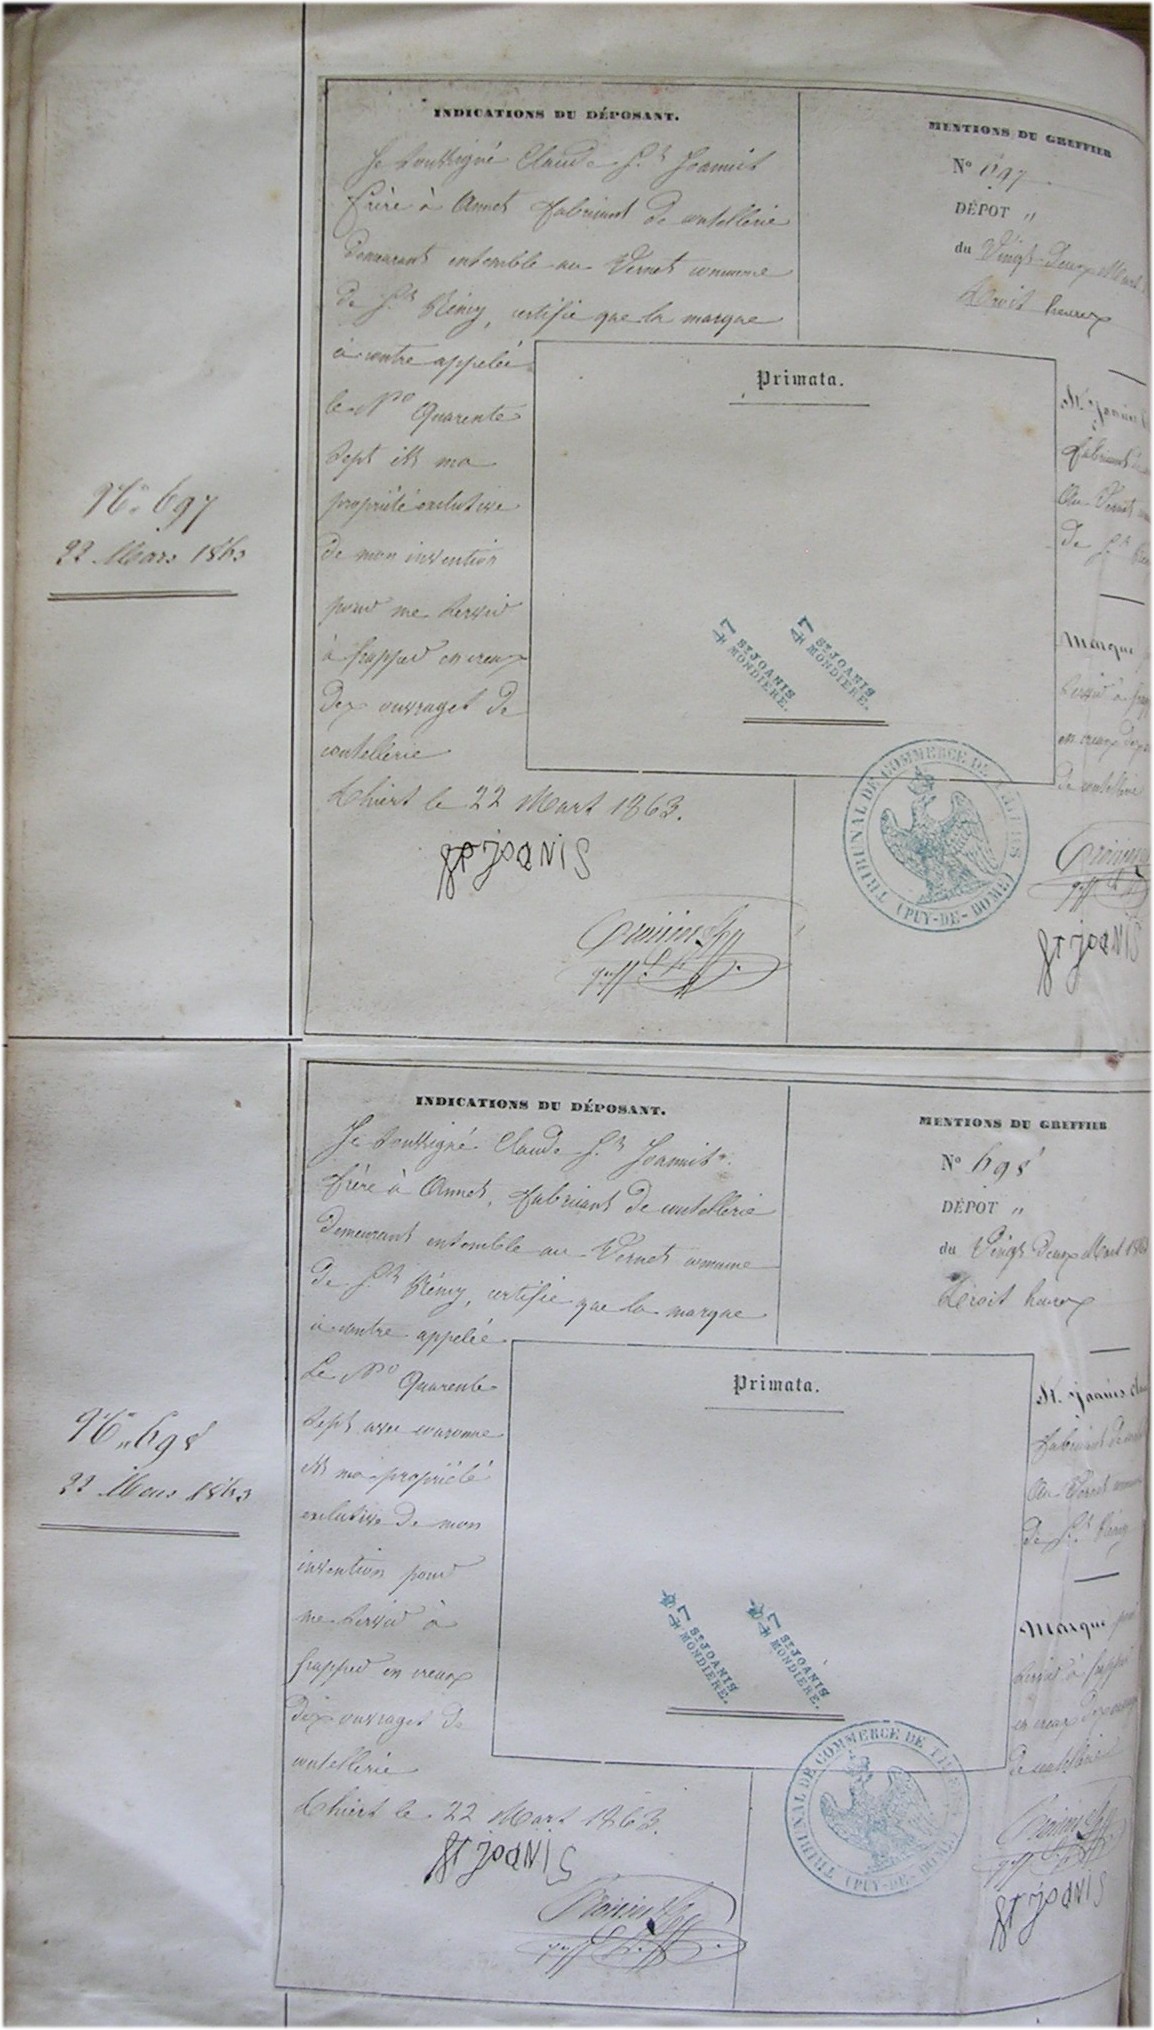 INDICATIONS DU DÉPOSANT.
Je soussigné Claude St Joannis
frère à Annet fabricant de coutellerie
demeurant ensemble au Vernet commune
de St Rémy, certifie que la marque
ci contre appelée
le No Quarente
sept est ma
propriété exclusive
de mon invention
pour me servir
à frapper en creux
des ouvrages de
coutellerie
Thiers le 22 Mars 1863.
St joaNIS
MENTIONS DU GREFFIER
No 697
DÉPOT "
du Vingt Deux Mars
trois heures
Primata.
47
ST JOANIS
MONDIÈRE.
47
ST JOANIS
MONDIÈRE.
St joanis
fabricant
au Vernet
de St
Marque
servir à
en creux
de coutellerie
TRIBUNAL DE COMMERCE DE THIERS
(PUY-DE-DOME)
St joaNIS
No 697
22 Mars 1863
INDICATIONS DU DÉPOSANT.
Je soussigné Claude St Joannis
frère à Annet, fabricant de coutellerie
demeurant ensemble au Vernet commune
de St Rémy, certifie que la marque
ci contre appelée
Le No Quarente
sept avec couronne
est ma propriété
exclusive de mon
invention pour
me servir à
frapper en creux
des ouvrages de
coutellerie
Thiers le 22 Mars 1863.
St joaNIS
MENTIONS DU GREFFIER
No 698
DÉPOT "
du Vingt Deux Mars 1863
trois heures
Primata.
47
ST JOANIS
MONDIÈRE.
47
ST JOANIS
MONDIÈRE.
St. joanis
fabricant de
au Vernet
de St Rémy
Marque pour
servir à frapper
en creux
de coutellerie
TRIBUNAL DE COMMERCE DE THIERS
(PUY-DE-DOME)
St joaNIS
No 698
22 Mars 1863